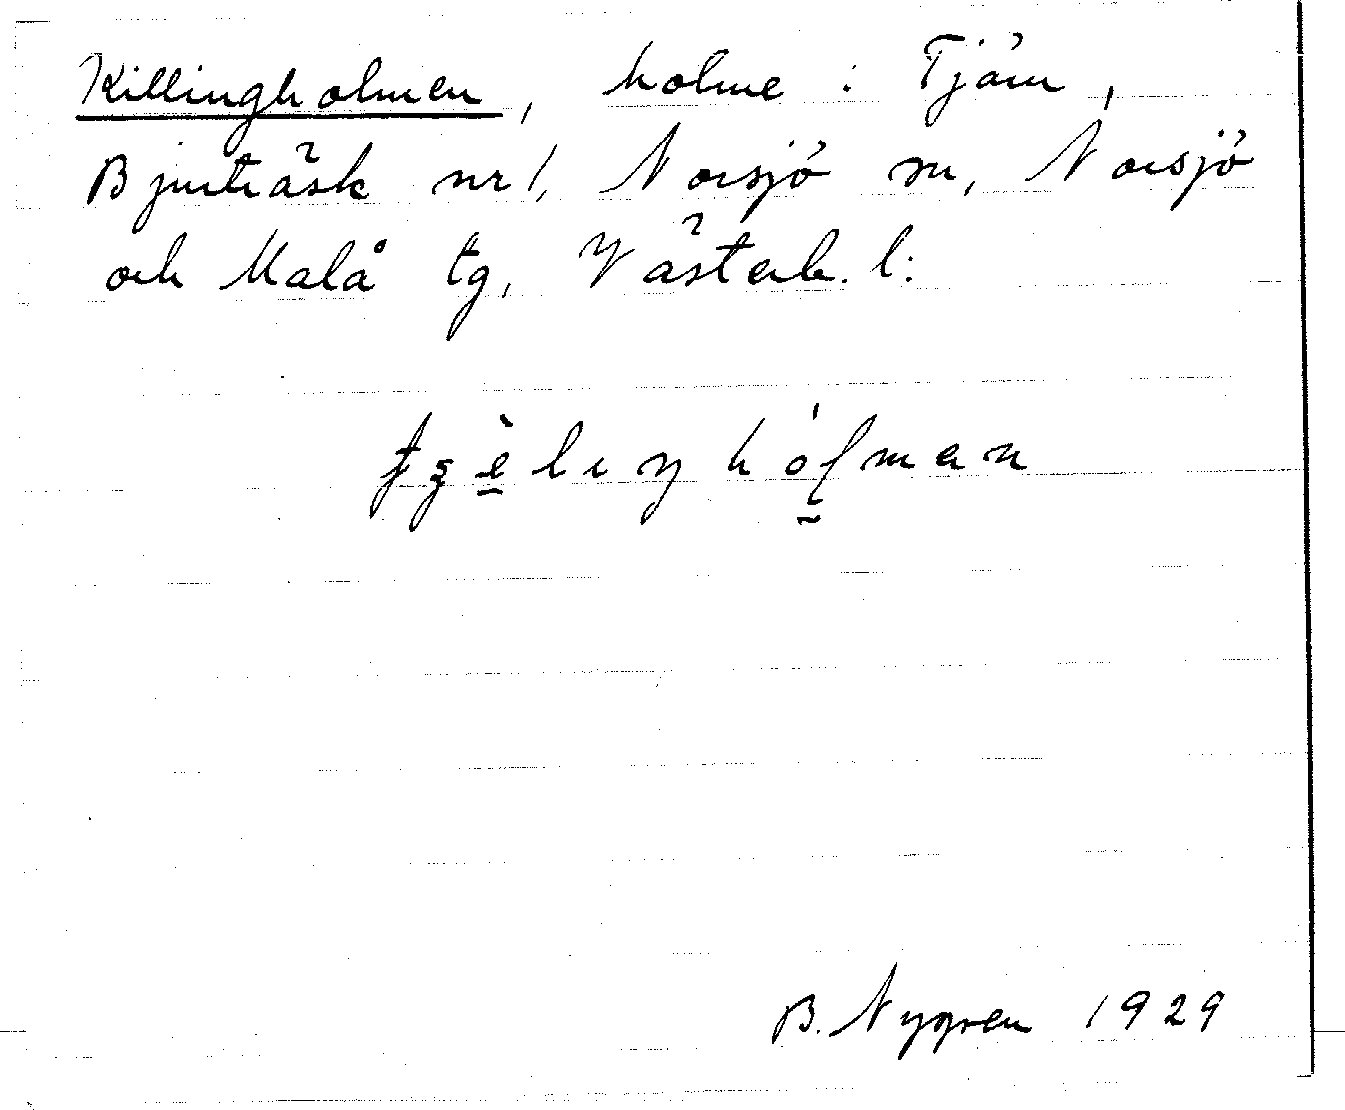 Killingholmen, holme i Tjärn,
Bjurträsk nr 1, Norsjö sn, Norsjö
och Malå tg, Västerb. l:
B. Nygren 1929